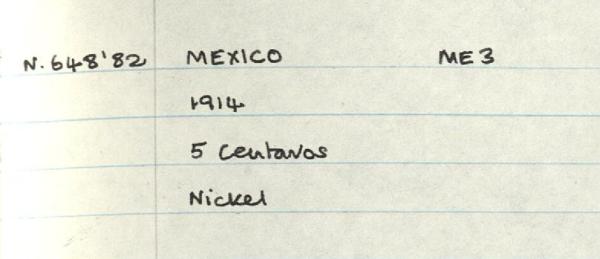 N. 648'82 MEXICO ME 3
1914
5 Centavos
Nickel